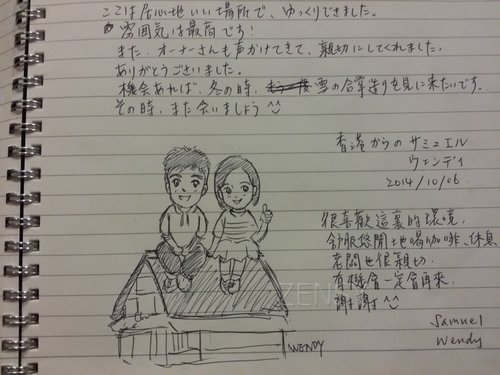 ここは居心地いい場所で、ゆっくりできました。
雰囲気は最高です!
また、オーナーさんも声がけてきて、親切にしてくれました。
ありがとうございました。
機会あれば、冬の時、雪の合掌造りを見に来たいです。
その時、また会いましょう ^^
香港からのサミュエル
ウェンディ
2014/10/06.
很喜歡這裏的環境,
舒服悠閒地喝咖啡、休息
老闆也很親切.
有機會一定會再來.
謝謝 ^^
Samuel
Wendy
WENDY
ZEN